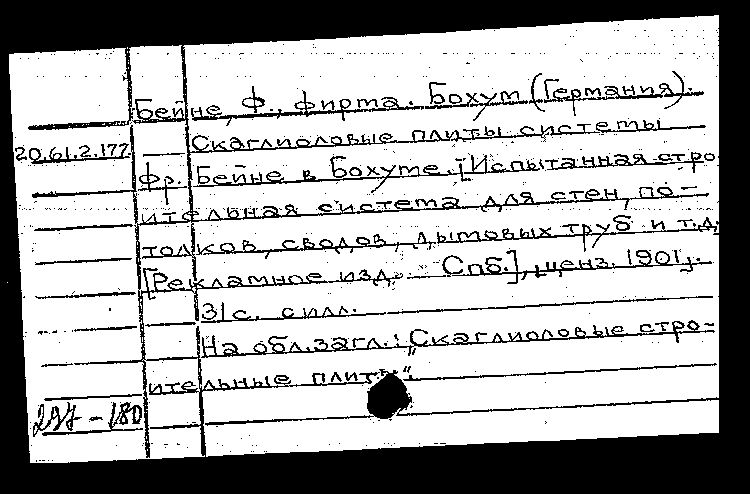 Бейне, Ф., фирма. Бохум (Германия).
20.61.2.177
Скаглиоловые плиты системы
Фр. Бейне в Бохуме. [Испытанная стро
ительная система для стен, по-
толков, сводов, дымовых труб и т.д.
[Рекламное изд. – Спб.], ценз. 1901.
31с. силл.
На обл.загл.: „Скаглиоловые стро-
ительные плиты".
297-180